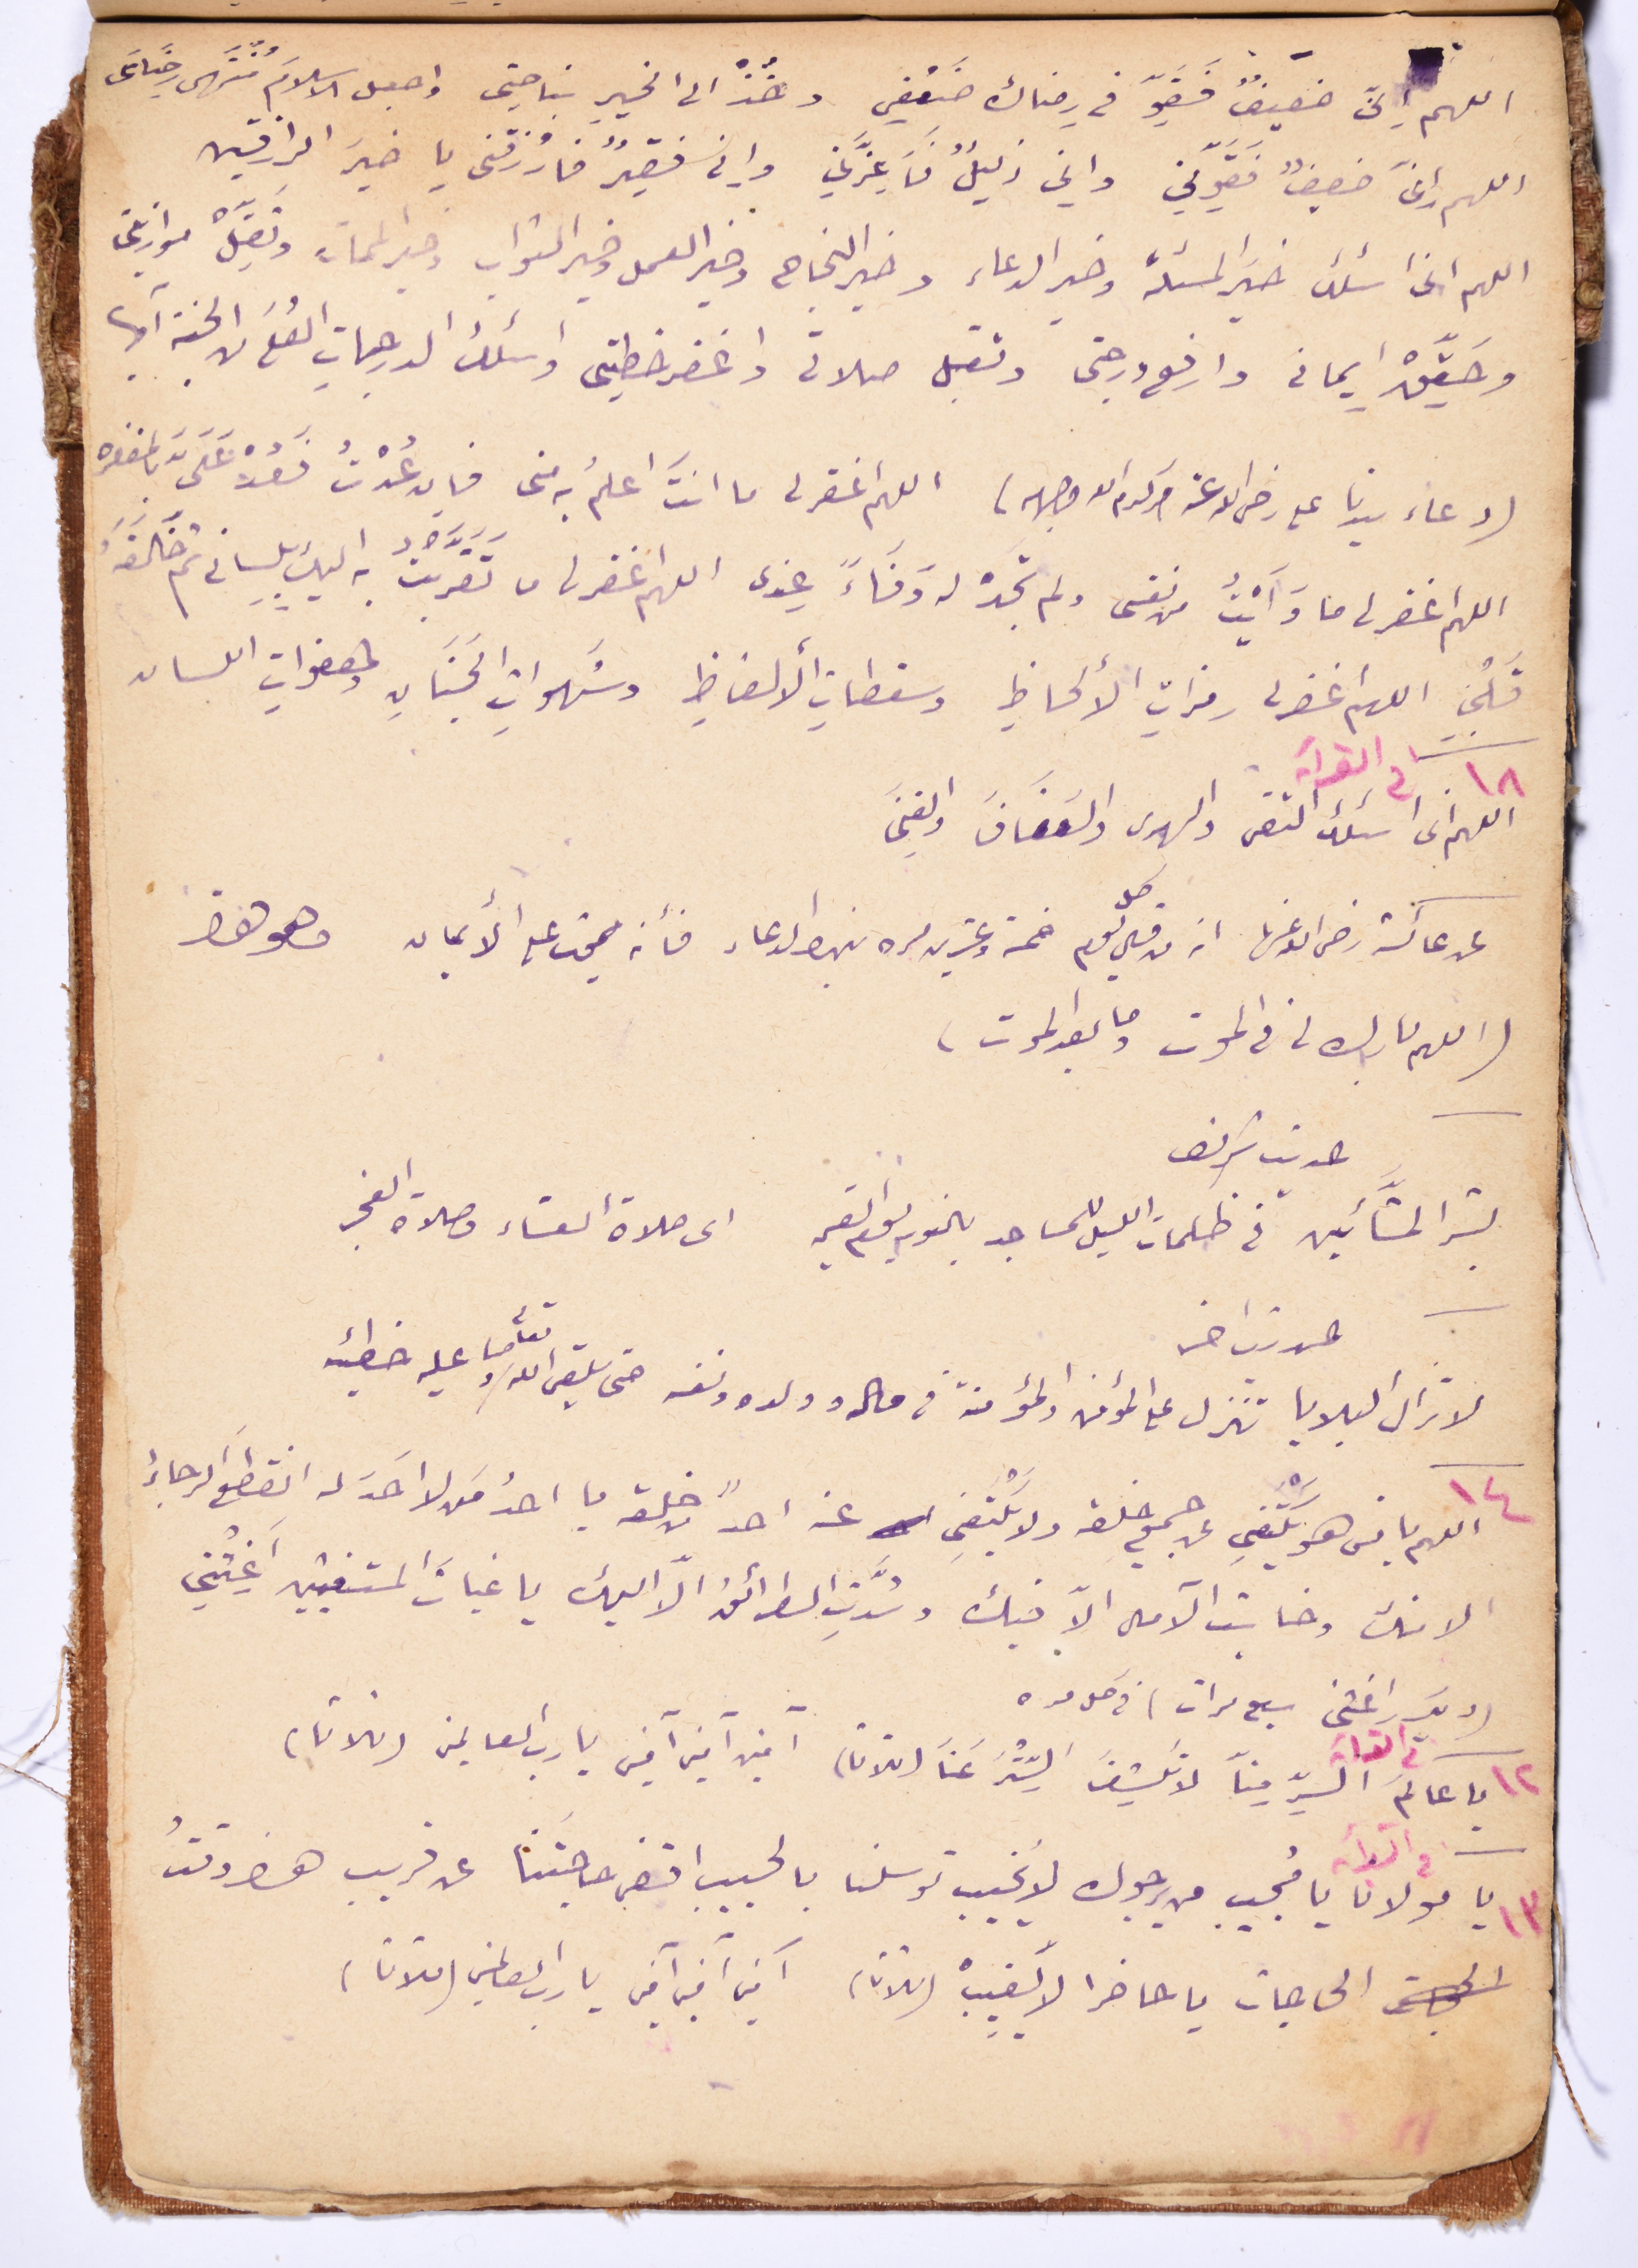 اللهم إِنّى ضعيفٌ فَقَوِّ فى رضاك ضَعْفِي وخُذْ الى الخيرِ بناصيتى واجعل الاسلامَ مُنْتَهى رِضَاىَ
اللهم إِنّىَ ضعيفٌ فَقَوِّنِي وانى ذليلٌ فَأَعِزَّنِي وإِنى فقيرٌ فارْزُقْنى يا خيرَ الرازقين
اللهم انى اسئلك خيرَ المسئلة وخير الدعاء وخير النجاح وخير العمل وخير الثواب وخير الممات وثَقِّلْ موازينى
وحَقِّقْ إِيمانى وارفع درجتى وتقبل صلاتى واغفر خطيئتى واسئلك الدرجاتِ العُلَى من الجنة آمين
(دعاء سيدنا على رضى الله عنه وكرم الله وجهه) اللهم اغفر لى ما انتَ اعلمُ به منى فان عُدْتُ فَعُدْ عَلَىَّ بالمغفرة
اللهم اغفر لى ما وَأَيْتُ من نفسى ولم تجدْ له وَفَاءً عِندى اللهم اغفر لى ما تَقَرَّبْتُ به اليك بلِسانى ثم خَالَفَهُ
قَلْبى اللهم اغفر لى رمزاتِ الألحاظِ وسقطاتِ الألفاظِ وشَهواتِ الجَنَانِ وهفواتِ اللسان
١٨ فى القرآة
اللهم انى اسئلك التقى والهدى والعَفَافَ والغِنَى
عن عائشة رضى الله عنها انه من قرأ كل يوم خمسة وعشرين مره بهذا الدعاء فأنه يموت على الأيمان وهو هذا
(اللهم بارك لى فى الموت وما بعد الموت)
حديث شريف
بشر المشَّائين فى ظلمات الليل للمساجد بالنور يوم القيمه اى صلاة العشاء وصلاة الفجر
حديث اخر
لا تزال البلايا تنزل على المؤمن والمؤمنة فى ماله وولده ونفسه حتى يلقى الله تعالى وما عليه خطيئه
١٤
اللهم يا من هو يَكْتَفِي عن جميع خلقه ولا يَكْتَفِي عنه احدٌ من خلقه يا احدُ مَن لا احَدَ له انقطَعَ الرجاءُ
الا منك وخابت الآمال الاّ فيك وسُدَّتِ الطرائقُ الاّ اليك يا غياثَ المستغيثين اَغِثْنِي
(ويكرر اغثنى سبع مرات) فى كل مره
١٢ فى القرآة
يا عالمَ السِّرِّ مِنَّا لا تَكْشِفَ السِّتْرَ عَنَّا (ثلاثا) آمين آمين آمين يا رب العالمين (ثلاثا)
فى القرآة
١٣ يا مولانا يا مُجيب من يرجوك لا يُخيب توسلنا بالحبيب اقض حاجتَنَا عن قريب هذا وقتُ
الحاجات يا حاضرا لا يَغيبْ (ثلاثا) آمين آمين آمين يا رب العالمين (ثلاثا)